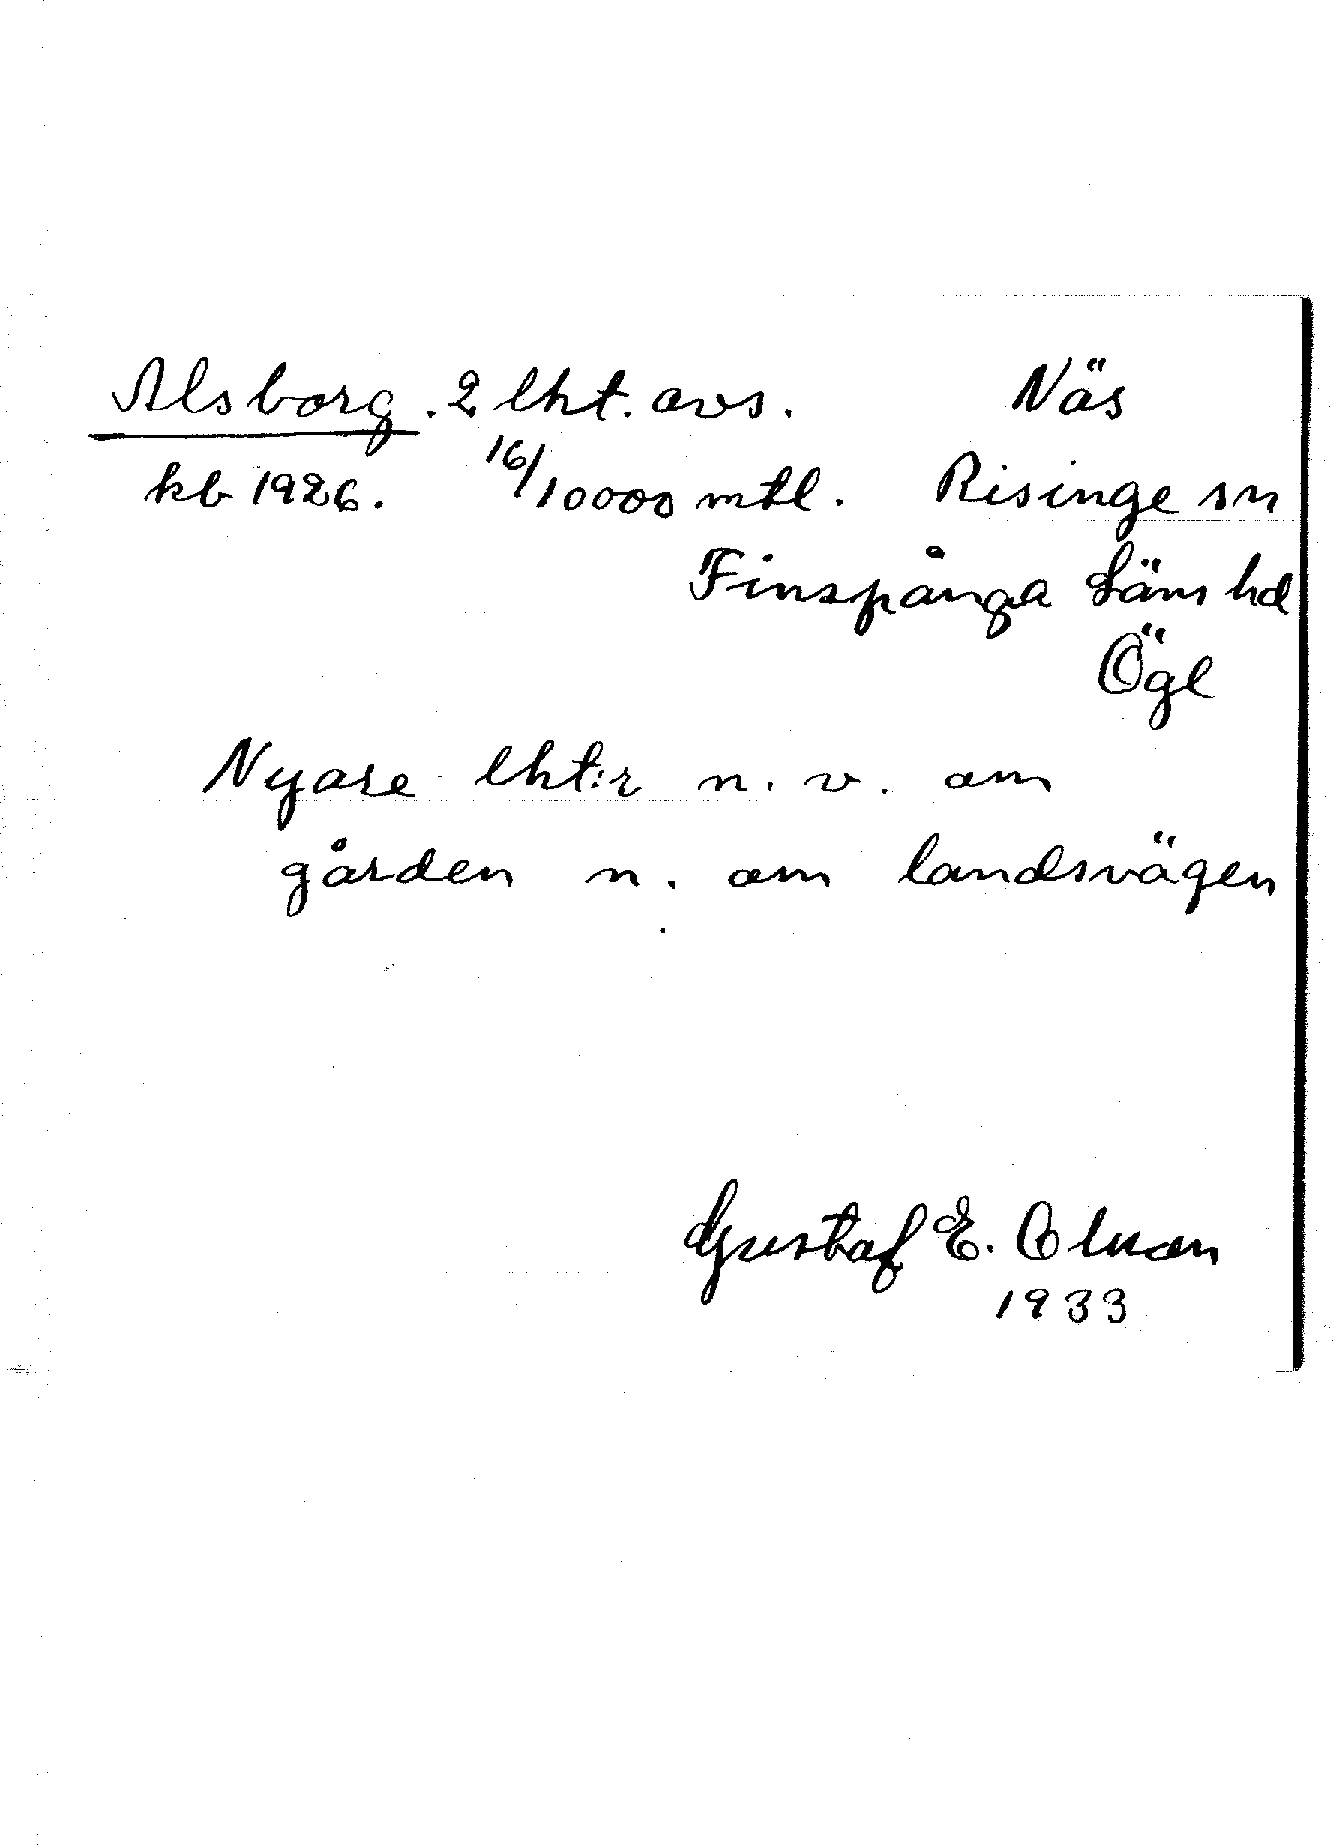 Alsborg. 2 lht. avs. Näs
kb 1926. 16/10000 mtl. Risinge sn
Finspånga Läns hd
Ögl
Nyare lht:r n. v. om
gården n. om landsvägen
Gustaf E. Olsson
1933